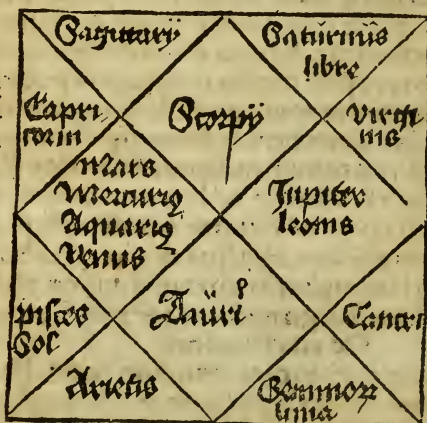 Sagittarij
Saturnus
libre
Capri
corin
Scorpij
Virgi
nis
Mars
Mercuriꝯ
Aquariꝯ
Venus
Jupiter
leonis
pisces
Sol
Tauri
Cancri
Arietis
Geminoꝝ
luna